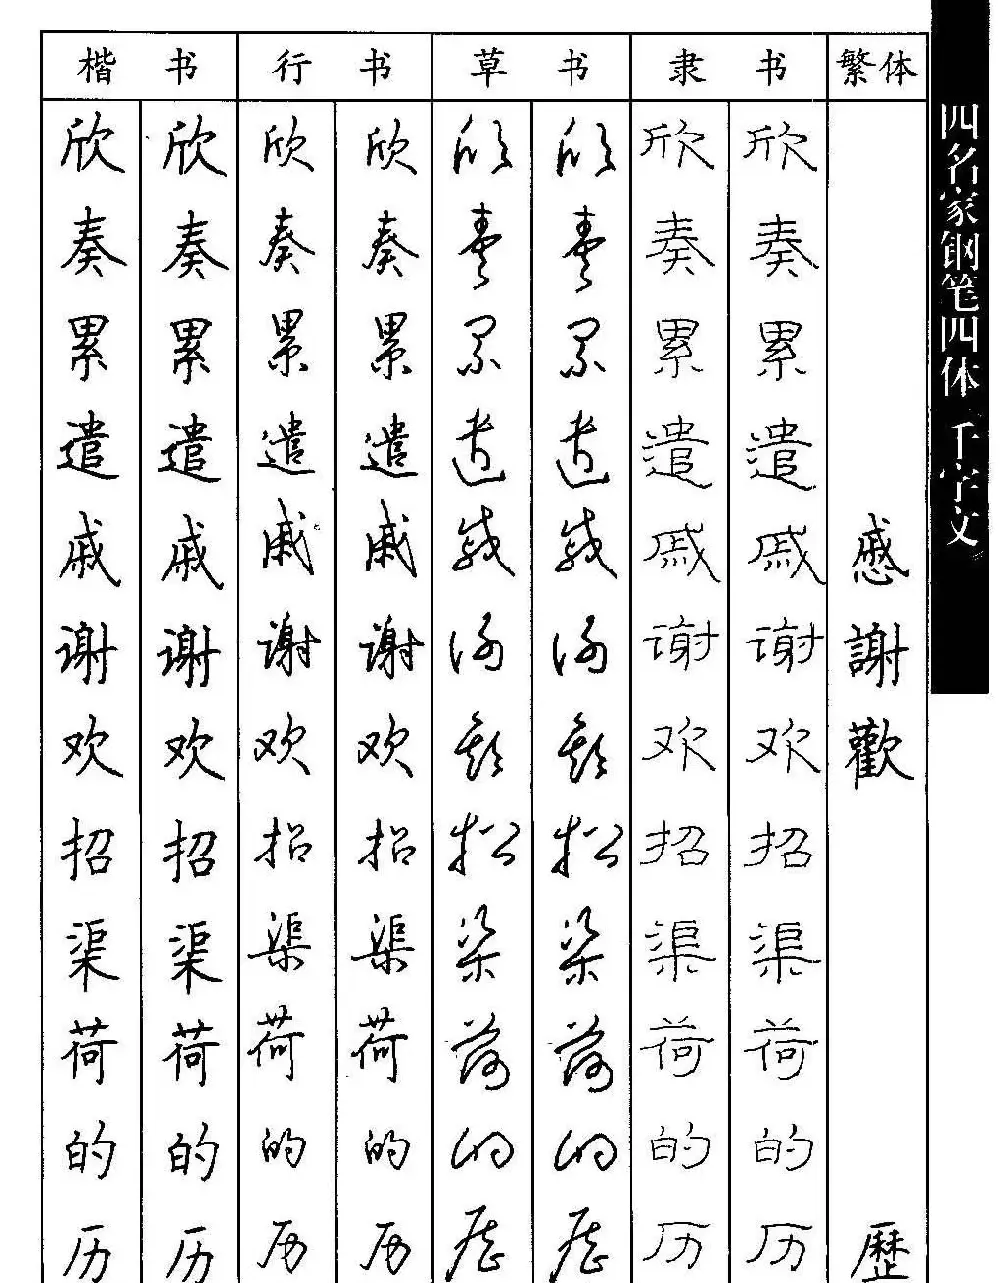 楷 书 行 书 草 书 隶 书 繁体
欣 欣 欣 欣 欣 欣 欣 欣
奏 奏 奏 奏 奏 奏 奏 奏
累 累 累 累 累 累 累 累
遣 遣 遣 遣 遣 遣 遣 遣
戚 戚 戚 戚 戚 戚 戚 戚 慼
谢 谢 谢 谢 谢 谢 谢 谢 謝
欢 欢 欢 欢 欢 欢 欢 欢 歡
招 招 招 招 招 招 招 招
渠 渠 渠 渠 渠 渠 渠 渠
荷 荷 荷 荷 荷 荷 荷 荷
的 的 的 的 的 的 的 的
历 历 历 历 历 历 历 历 歷
四名家钢笔四体千字文